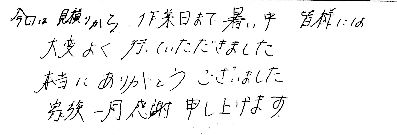 今回は見積りから作業日まで暑い中皆様には
大変よく行っていただきました
本当にありがとうございました
家族一同感謝申し上げます